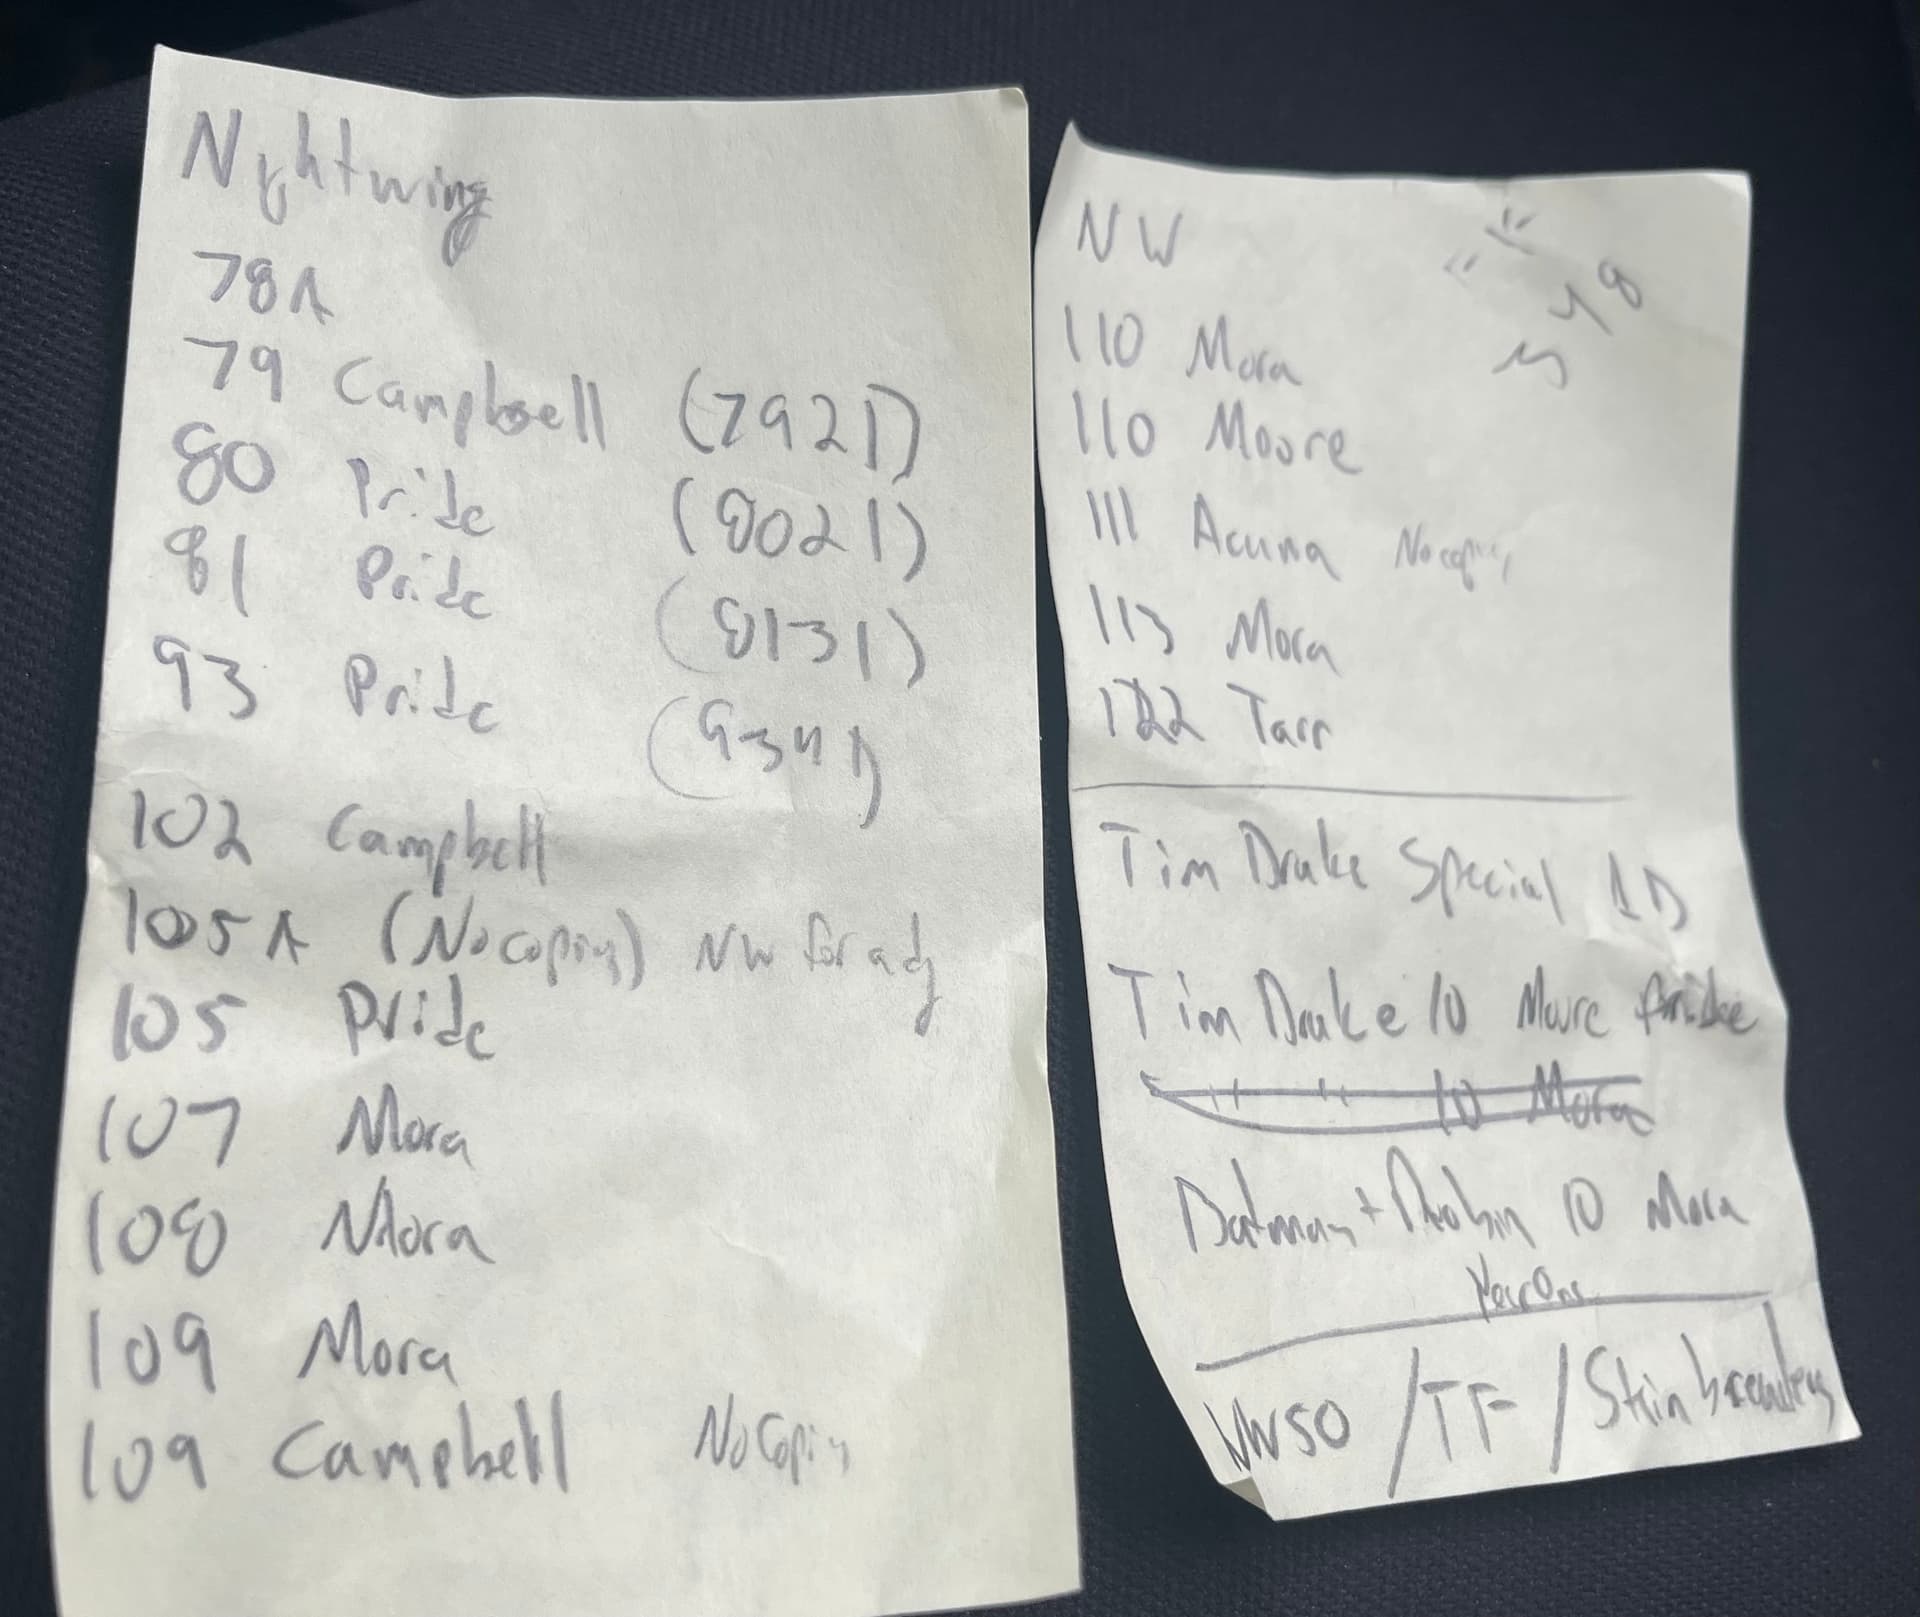 Nightwing
78A
79 Campbell (7921)
80 Pride (8021)
81 Pride (8131)
93 Pride (9341)
102 Campbell
105A (No copies) NW for adj
105 Pride
107 Mora
108 Mora
109 Mora
109 Campbell No Copies
NW
548
110 Mora
110 Moore
111 Acuna No copies
113 Mora
122 Tarr
Tim Drake Special 1D
Tim Drake 10 Moore Pride
" " 10 Mora
Batman + Robin 10 Mora
Year One
NW50 / TF /